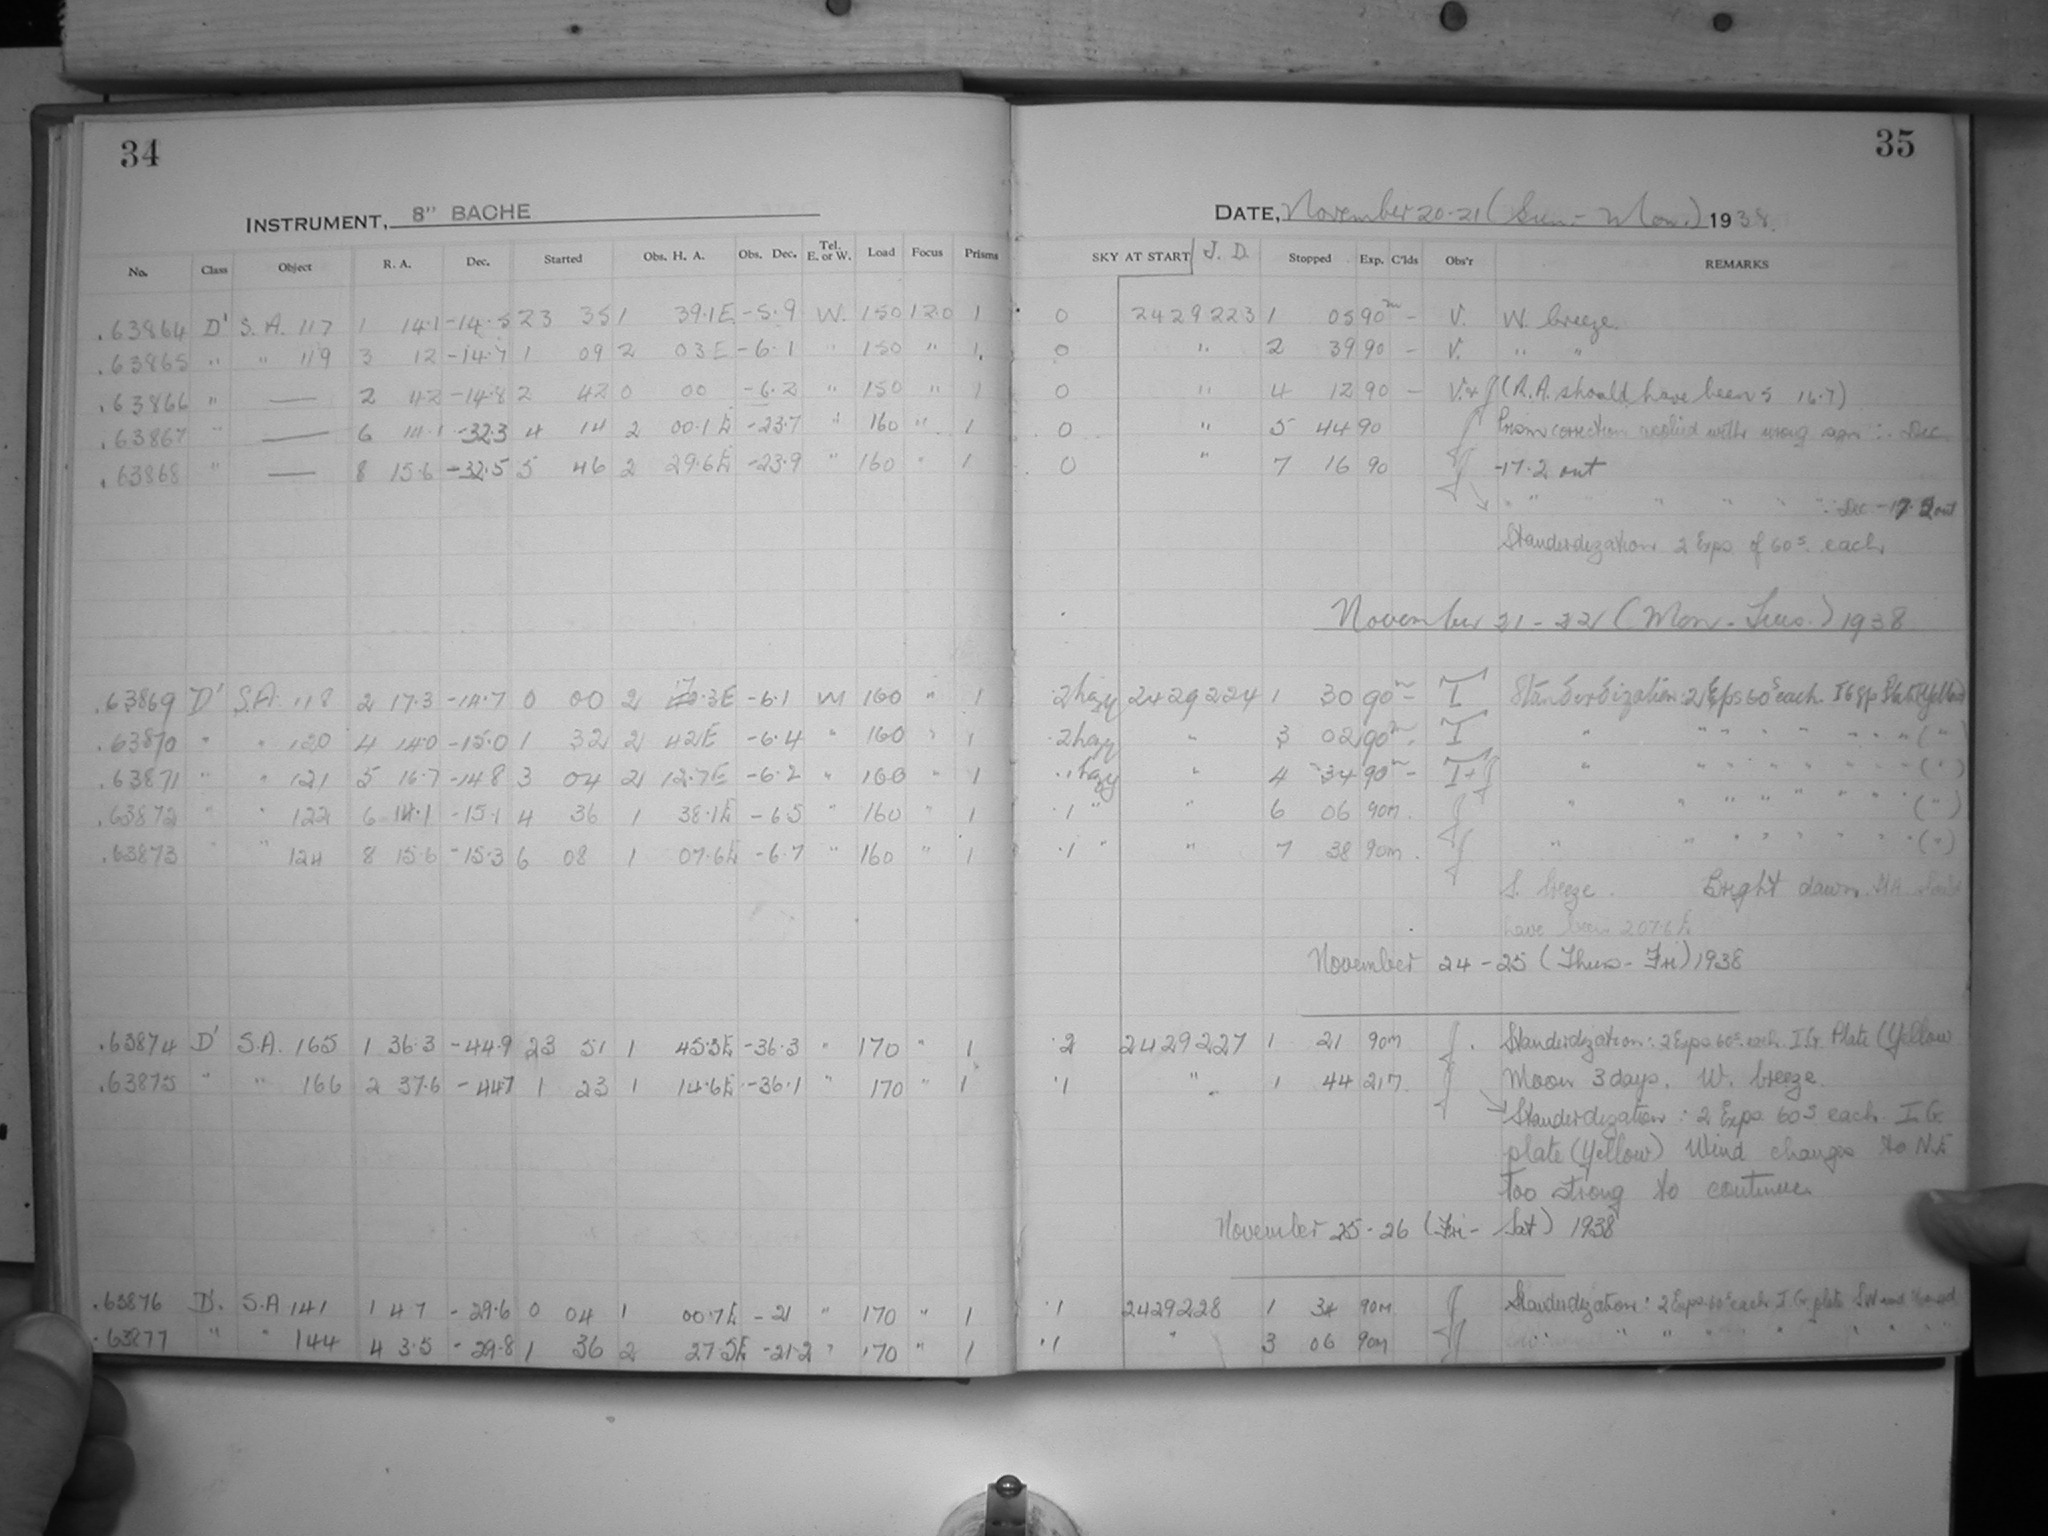 34
INSTRUMENT, 8" BACHE
No. Class Object R. A. Dec. Started Obs. H. A. Obs. Dec. Tel. E. or W. Load Focus Prisms
.63864 D' S. A. 117 1 14.1 -14.5 23 35 1 39.1E -5.9 W. 150 120 1
.63865 " " 119 3 12 -14.7 1 09 2 03E -6.1 " 150 " 1
.63866 " — 2 42 -14.8 2 42 0 00 -6.2 " 150 " 1
.63867 " — 6 14.1 -32.3 4 14 2 00.1E -23.7 " 160 " 1
.63868 " — 8 15.6 -32.5 5 46 2 29.6E -23.9 " 160 " 1
.63869 D' S.A. 118 2 17.3 -14.7 0 00 2 17.3E -6.1 W 160 " 1
.63870 " " 120 4 14.0 -15.0 1 32 2 42E -6.4 " 160 " 1
.63871 " " 121 5 16.7 -14.8 3 04 2 12.7E -6.2 " 160 " 1
.63872 " " 122 6 14.1 -15.1 4 36 1 38.1E -6.5 " 160 " 1
.63873 " " 124 8 15.6 -15.3 6 08 1 07.6E -6.7 " 160 " 1
.63874 D' S.A. 165 1 36.3 -44.9 23 51 1 45.3E -36.3 " 170 " 1
.63875 " " 166 2 37.6 -447 1 23 1 14.6E -36.1 " 170 " 1
.63876 D'. S.A 141 1 47 -29.6 0 04 1 00.7E -21 " 170 " 1
.63877 " " 144 4 3.5 -29.8 1 36 2 27.5E -21.2 " 170 " 1
35
DATE, November 20-21 (Sun.- Mon.) 1938.
SKY AT START J. D. Stopped Exp. C'lds Obs'r REMARKS
0 2429223 1 05 90m - V. W. breeze.
0 " 2 39 90 - V. " "
0 " 4 12 90 - V.+J (R.A. should have been 5 16.7)
0 " 5 44 90 J Prism correction applied with wrong sign ∴ Dec
0 " 7 16 90 J -17.2 out
" " " " " " ∴ Dec -17.2 out
Standerdization 2 Exps of 60s. each.
November 21-22 (Mon.-Tues.) 1938
.2 hazy 2429224 1 30 90m - T Standerdization: 2 Exps 60s each. I G plate (Yellow)
.2 hazy " 3 02 90m - T " " " " " " " " (")
.1 hazy " 4 34 90m - T+J " " " " " " " " (")
.1 " " 6 06 90m. J " " " " " " " " (")
.1 " " 7 38 90m. J " " " " " " " " (")
S. breeze. Bright dawn. HA should
have been 2 07.6E
November 24-25 (Thurs-Fri) 1938
.2 2429227 1 21 90m J. Standerdization: 2 Exps 60s. each. I G. Plate (Yellow
.1 " 1 44 21m. J Moon 3 days. W. breeze.
Standerdization: 2 Exps 60s each. I G.
plate (Yellow) Wind changes to N.E
too strong to continue.
November 25-26 (Fri- Sat) 1938
.1 2429228 1 34 90m J Standerdization: 2 Exps 60s each I G. plate SW wind
.1 " 3 06 90m J " " " " " " " "